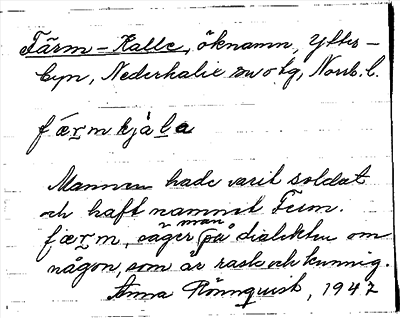 Färm-Kalle, öknamn, Ytter-
byn, Nederkalix sn o tg, Norrb. l.
färmkjala
Mannen hade varit soldat
och haft namnet Ferm.
färm, säger man på dialekten om
någon, som är rask och kunnig.
Anna Rönnqvist, 1947